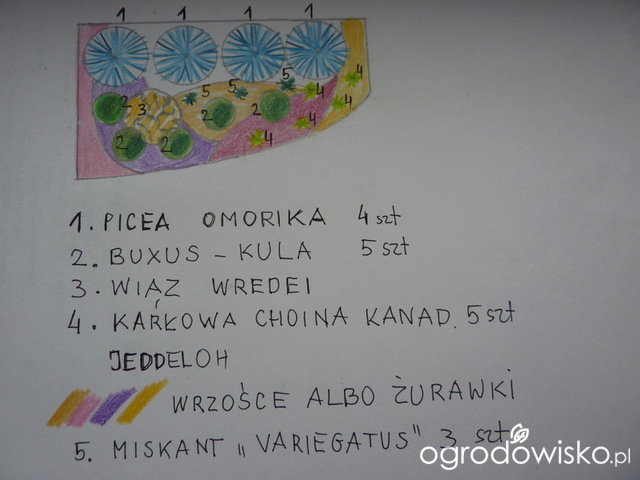 1 1 1 1
5 5 5 4
2 3 2 2 4
2 2 4 4
1. PICEA OMORIKA 4 szt
2. BUXUS – KULA 5 szt
3. WIĄZ WREDEI
4. KARŁOWA CHOINA KANAD. 5 szt
JEDDELOH
WRZOŚCE ALBO ŻURAWKI
5. MISKANT „VARIEGATUS" 3 szt
ogrodowisko.pl